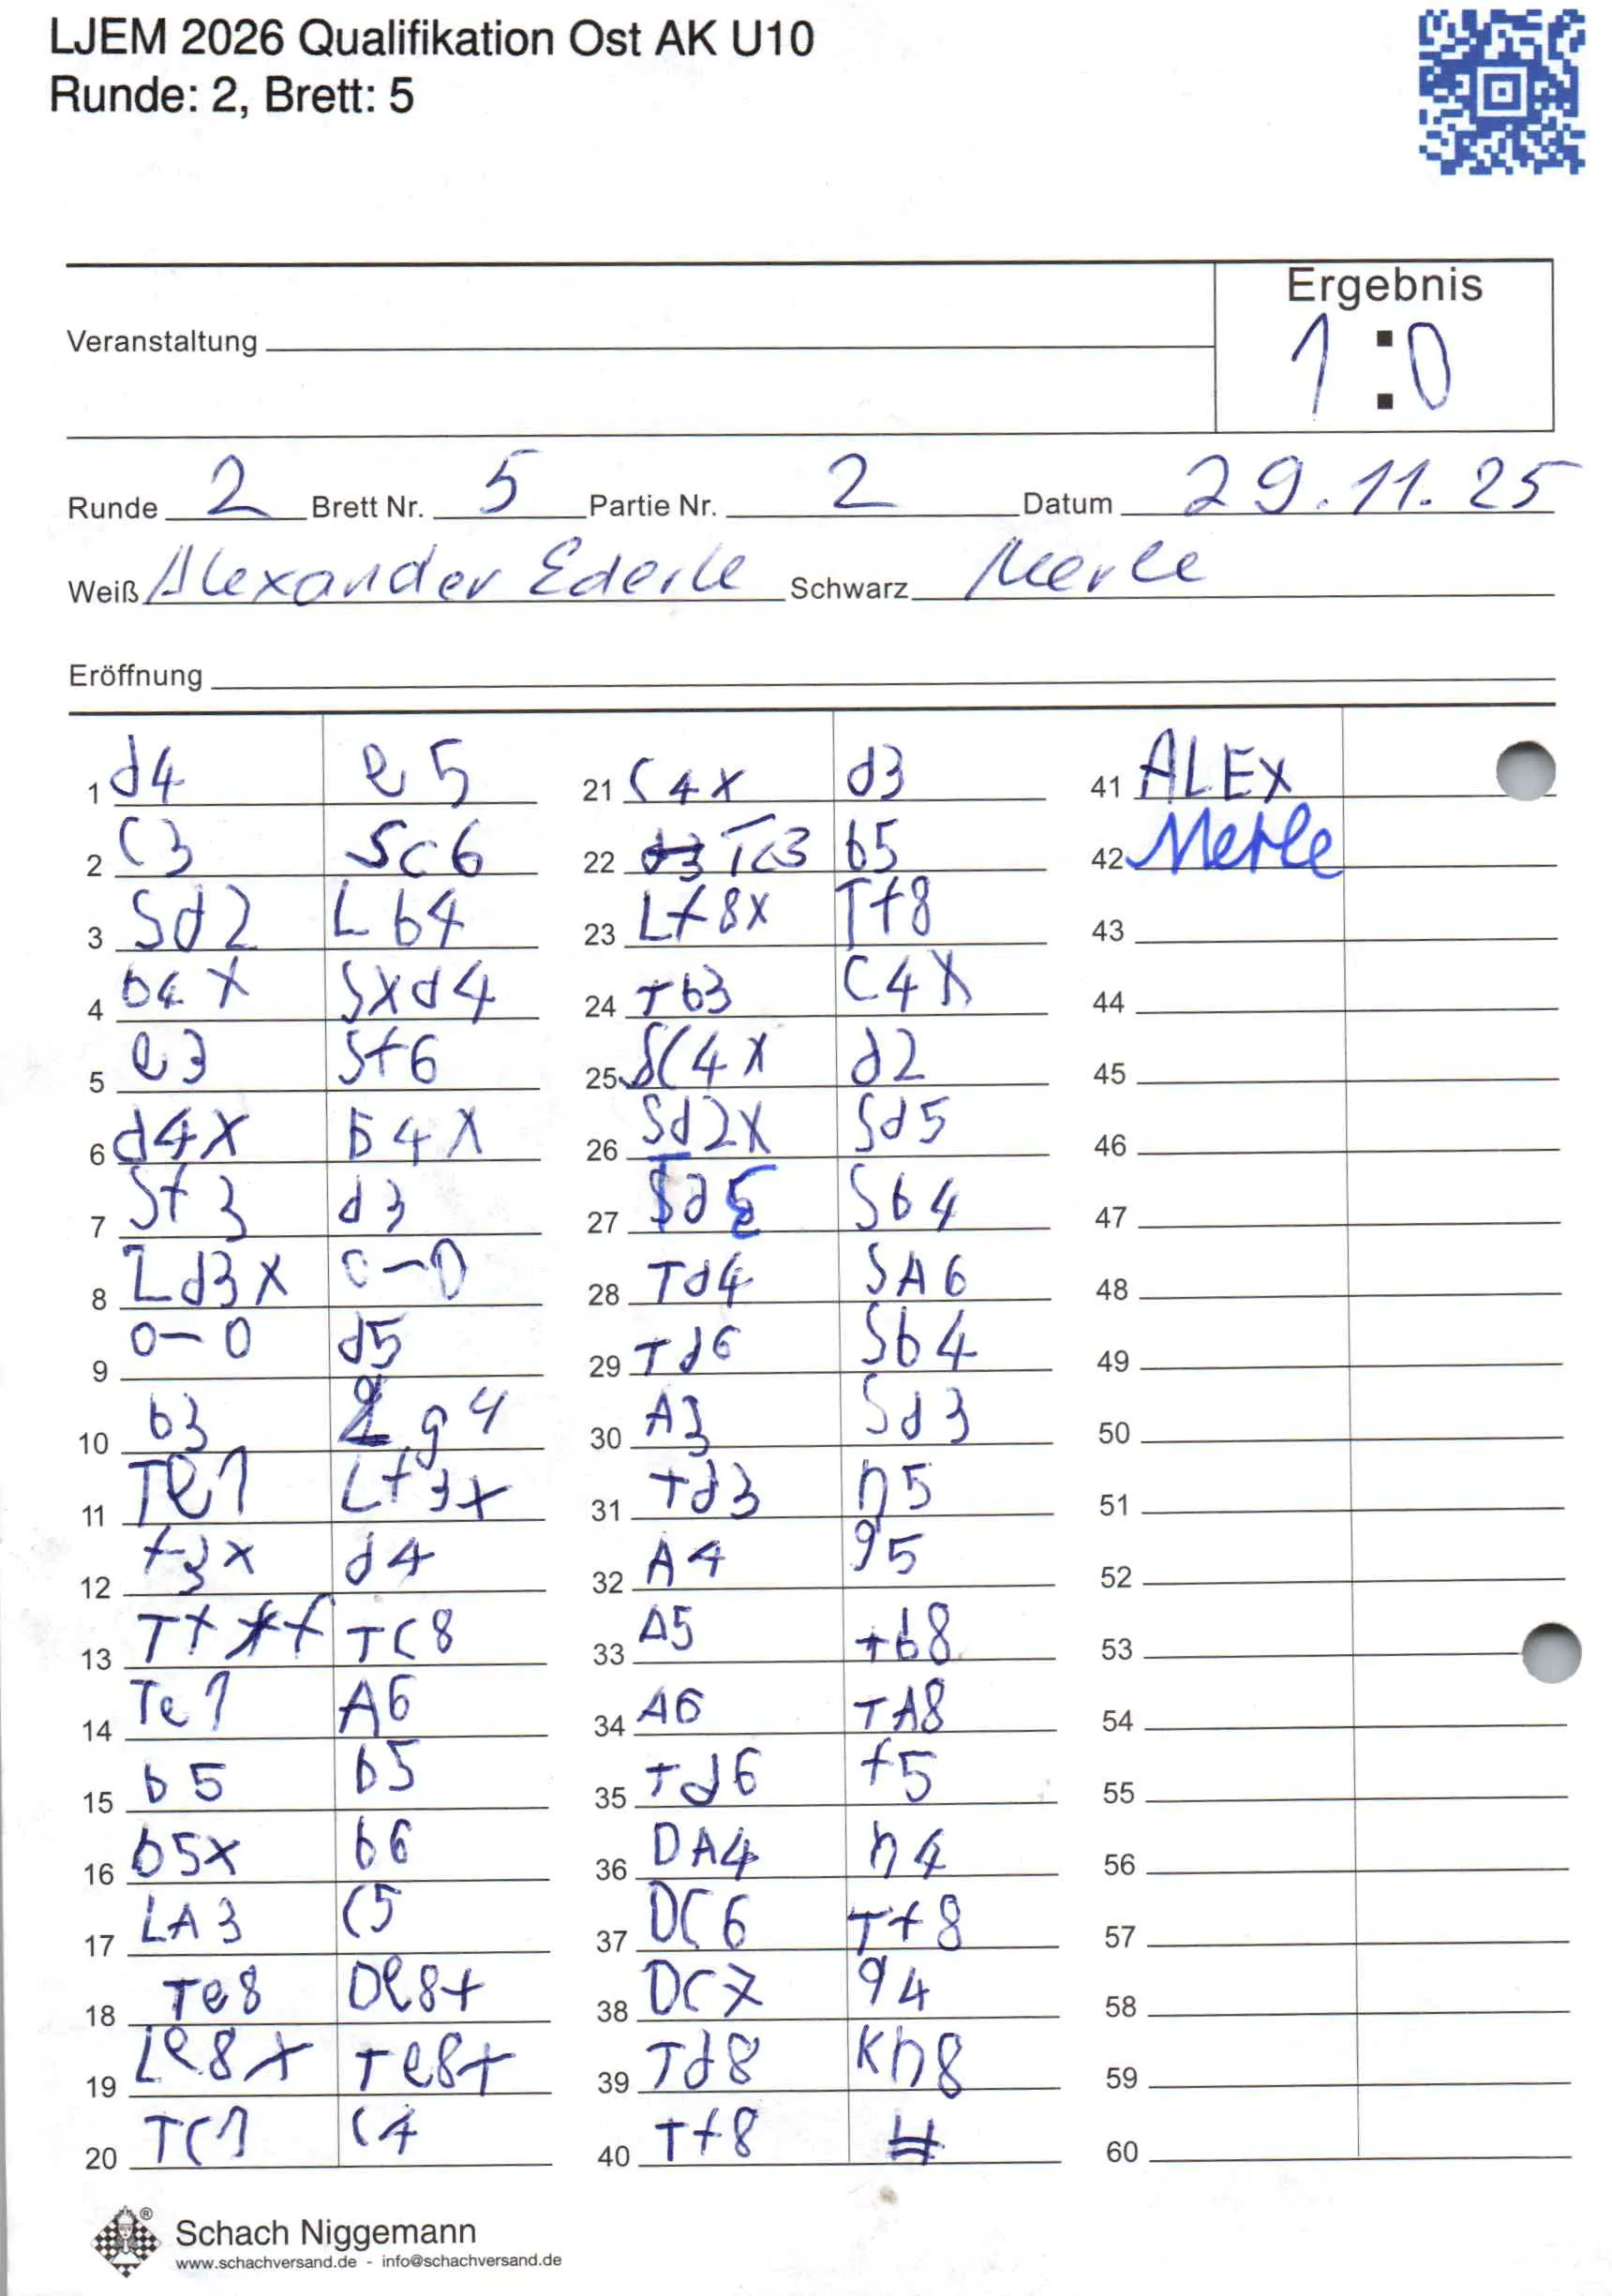 LJEM 2026 Qualifikation Ost AK U10
Runde: 2, Brett: 5
Ergebnis
1:0
Veranstaltung
Runde 2 Brett Nr. 5 Partie Nr. 2 Datum 29.11.25
Weiß Alexander Ederle Schwarz Merle
Eröffnung
1 d4 e5
2 C3 Sc6
3 Sd2 Lb4
4 b4X SXd4
5 e3 Sf6
6 d4X b4X
7 Sf3 d3
8 Ld3X 0-0
9 0-0 d5
10 b3 Lg4
11 Te1 Lf3x
12 f3x d4
13 TC8
14 Te1 A6
15 b5 b5
16 b5x b6
17 LA3 C5
18 Te8 De8+
19 Le8+ Te8+
20 TC1 C4
21 C4X d3
22 Tc3 b5
23 Lf8X Tf8
24 Tb3 C4X
25 SC4X d2
26 Sd2X Sd5
27 Sb4
28 Td4 SA6
29 Td6 Sb4
30 A3 Sd3
31 Td3 h5
32 A4 g5
33 A5 Tb8
34 A6 TA8
35 Td6 f5
36 DA4 h4
37 DC6 Tf8
38 DC7 g4
39 Td8 Kh8
40 Tf8 #
41 ALEX
42 Merle
43
44
45
46
47
48
49
50
51
52
53
54
55
56
57
58
59
60
®
Schach Niggemann
www.schachversand.de - info@schachversand.de